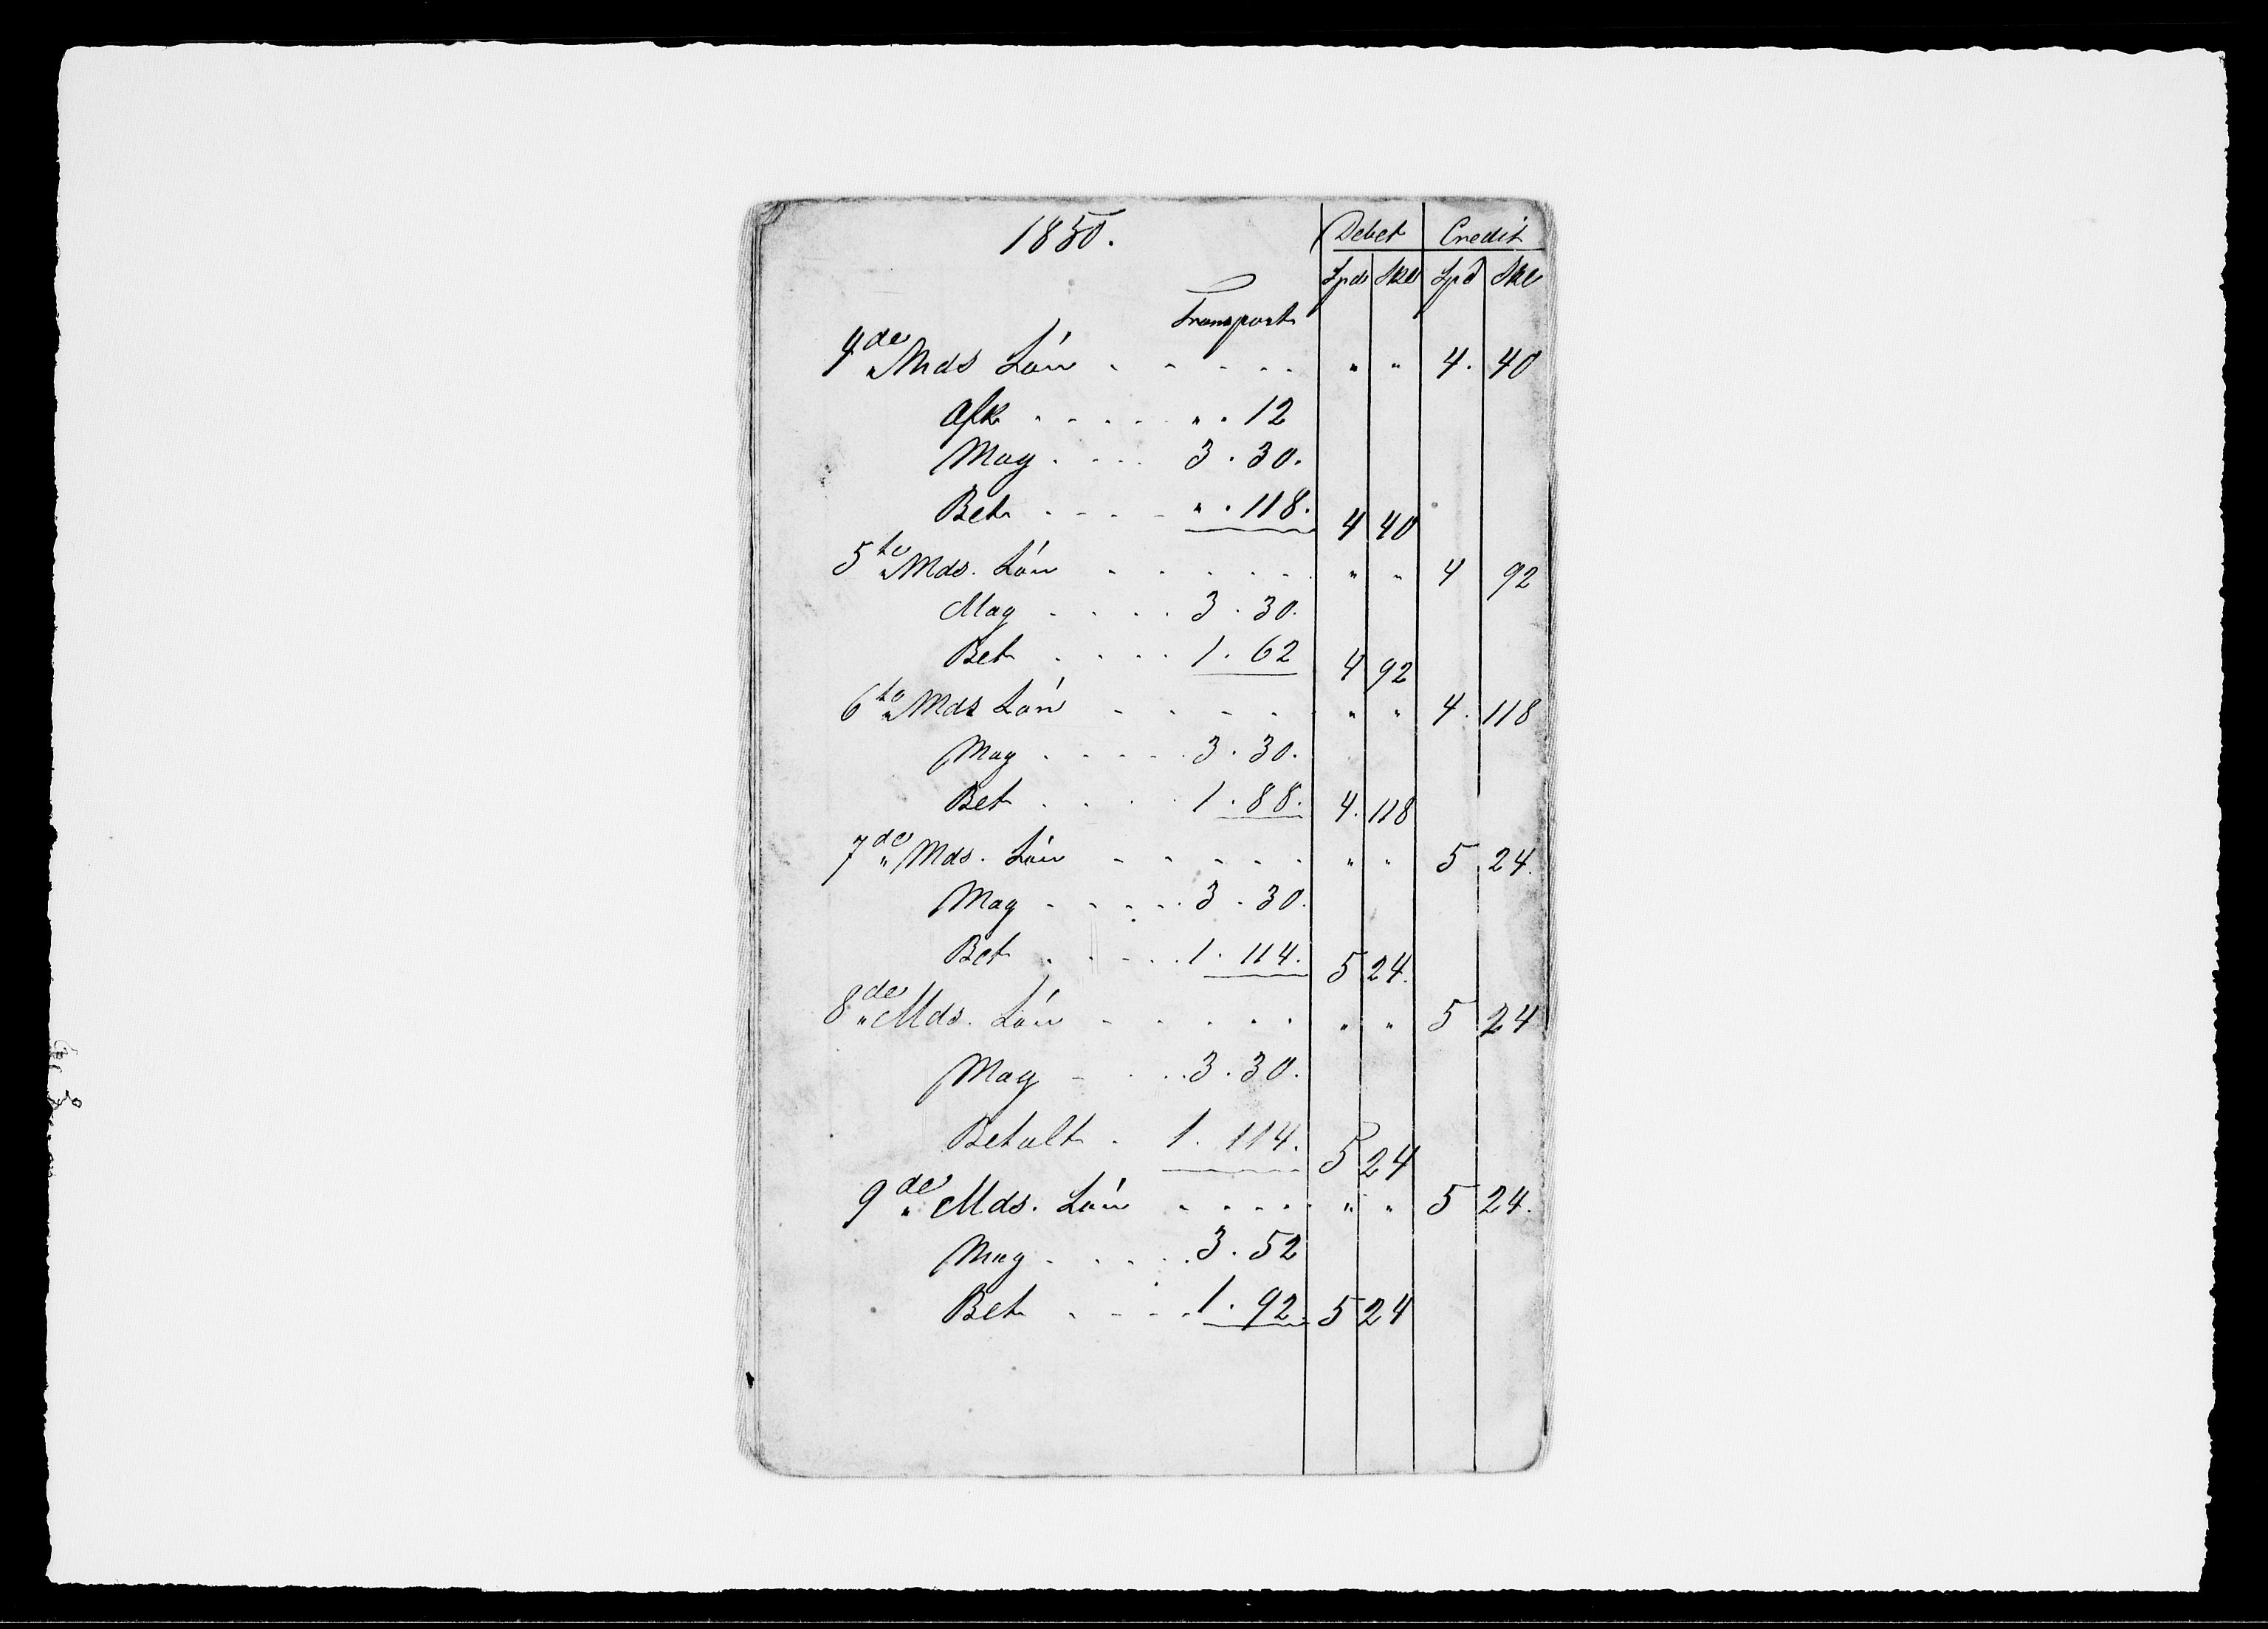 1850. Debet Credit
Spd Skl Spd Skl
Transport
4de Mds Lön . . . . . " " 4. 40
Afk . . . . " . 12
Mag . . . 3 . 30.
Bet . . . . " . 118. 4 40
5te Mds. Lön . . . . . " " 4 92
Mag . . . . 3 . 30.
Bet . . . . 1 . 62 4 92
6te Mds Lön . . . . " " 4. 118
Mag . . . . . 3 . 30.
Bet . . . . 1 . 88. 4. 118
7de Mds. Lön . . . . . " " 5 24.
Mag . . . . . 3 . 30.
Bet . . . . . 1 . 114. 5 24.
8de Mds. Lön . . . . . " " 5 24
Mag . . . . 3 . 30.
Betalt . 1. 114. 5 24
9de Mds. Lön . . . . . " " 5 24.
Mag . . . . . 3 . 52
Bet . . . . 1 . 92. 5 24